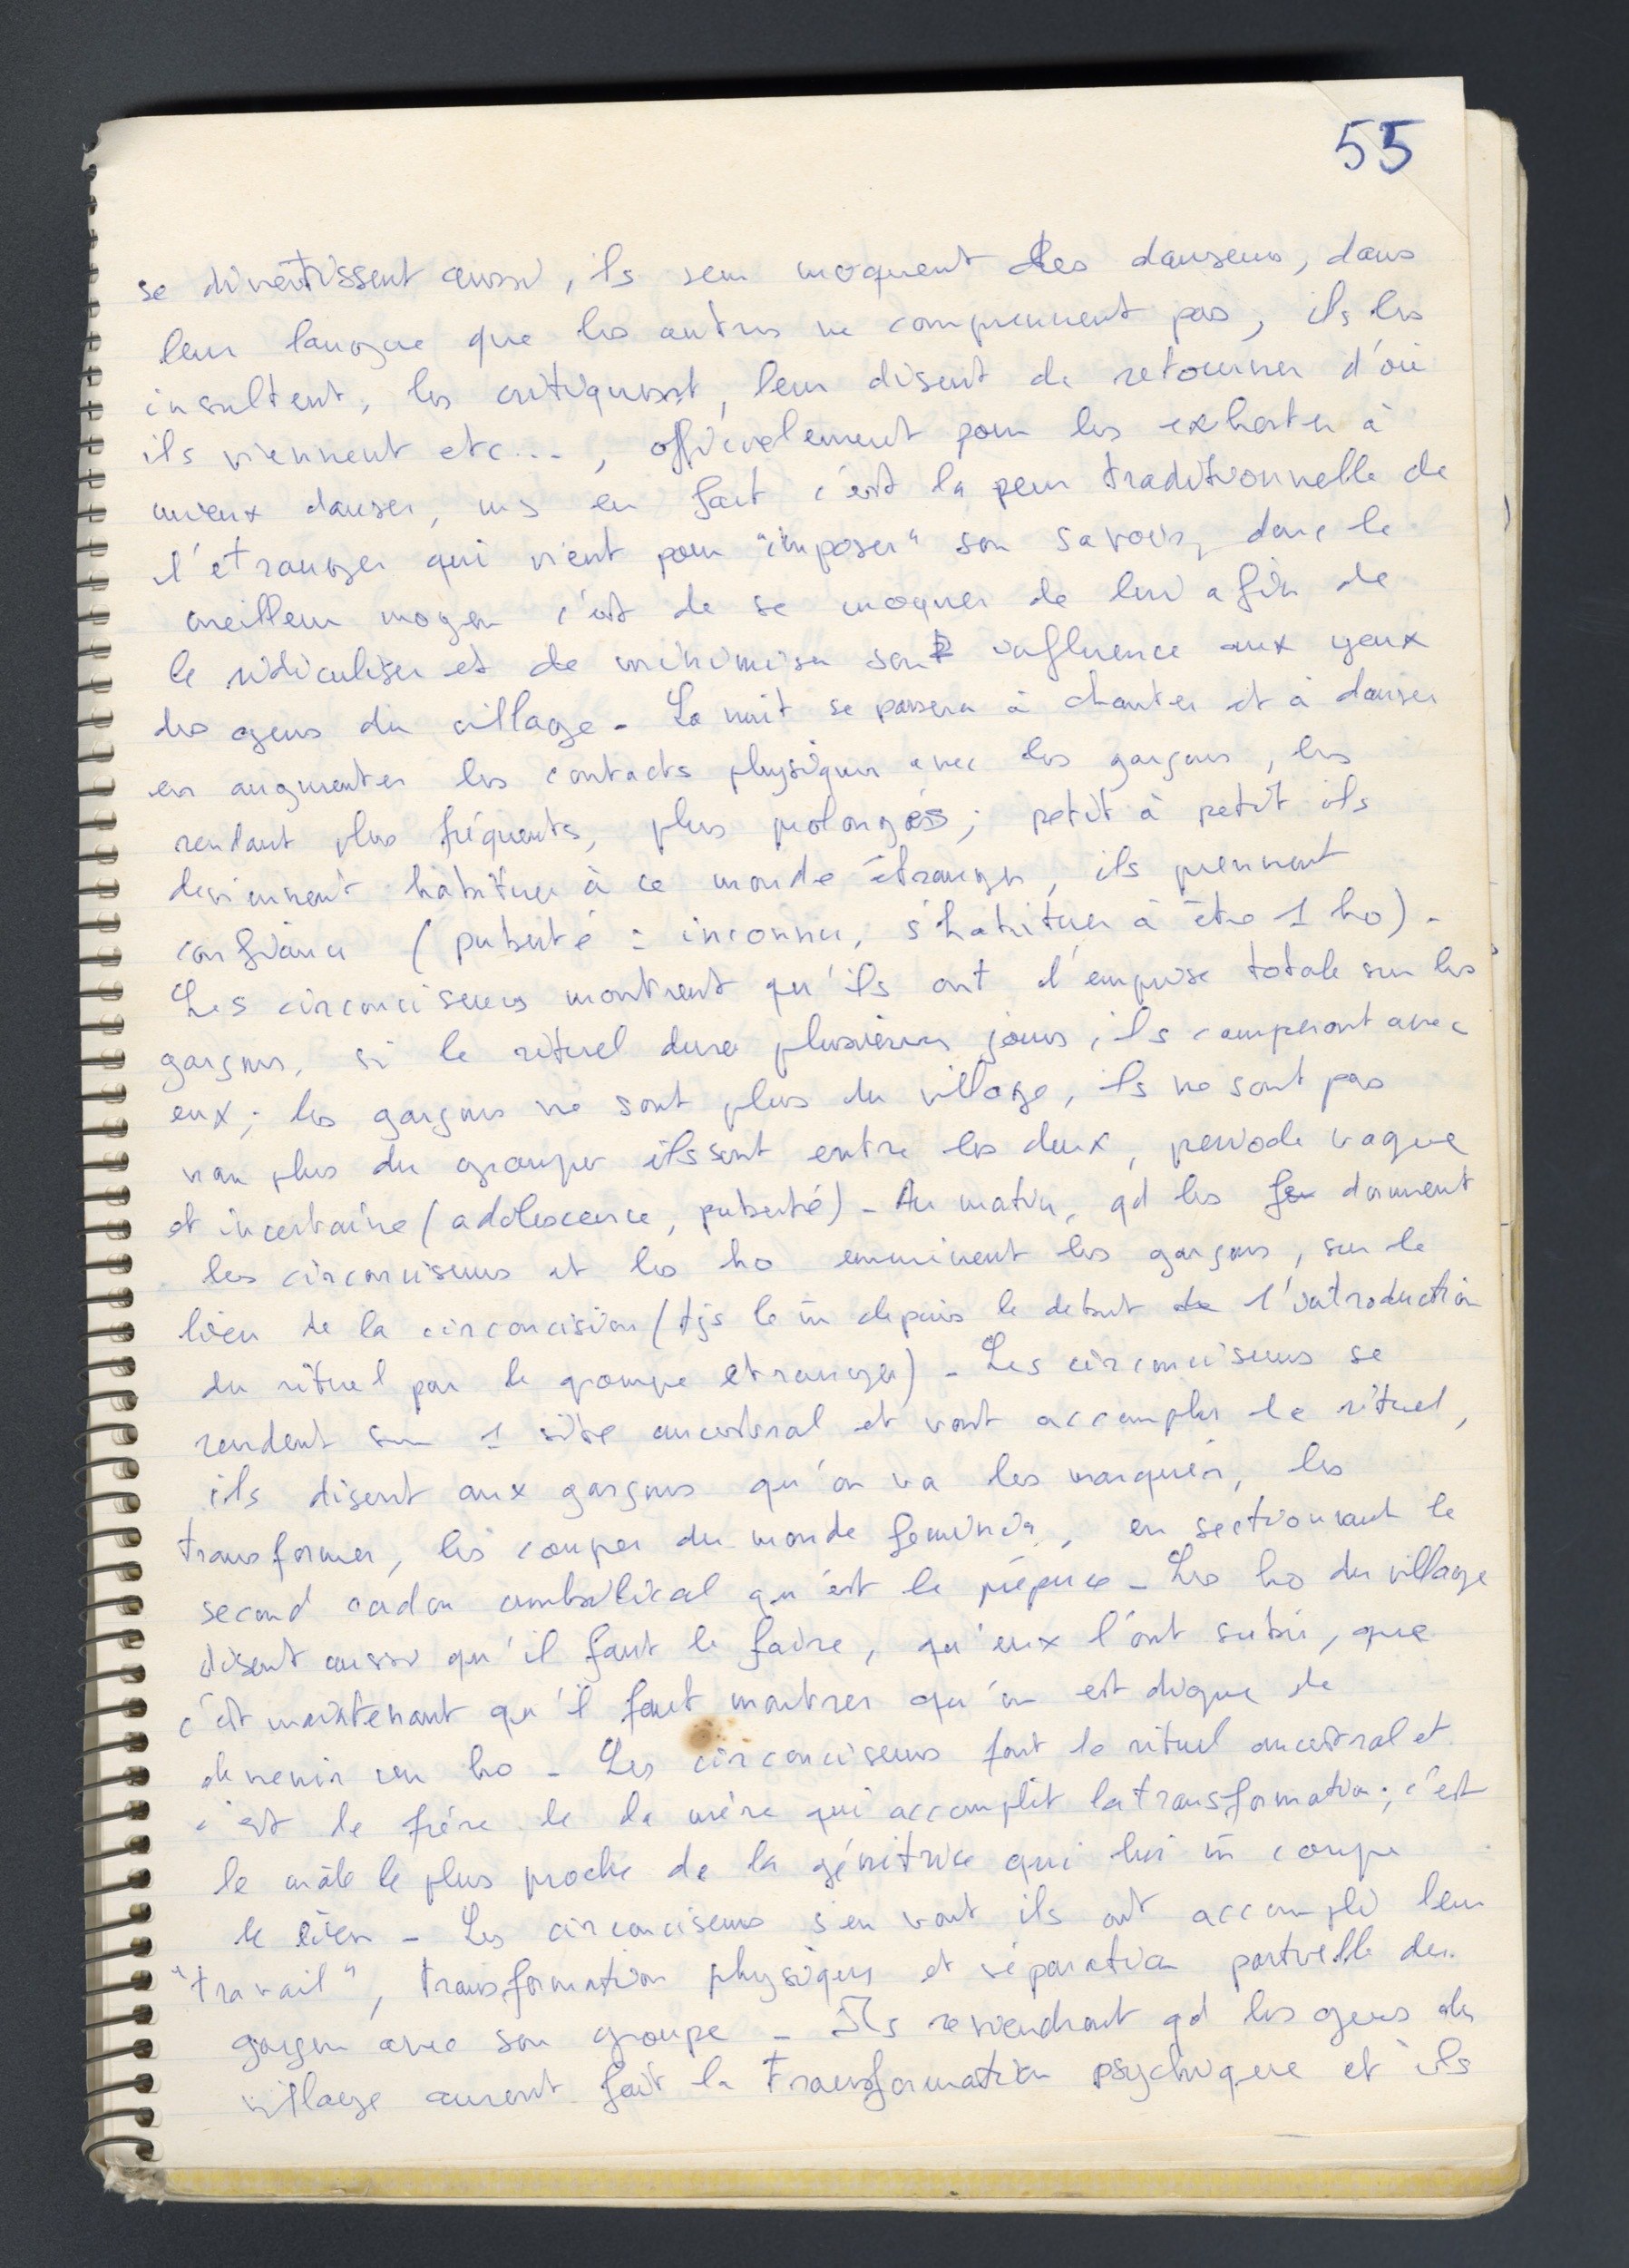 55
se divertissent aussi, ils sem moquent des danseurs, dans
leur langue que les autres ne comprennent pas, ils les
insultent, les critiquent, leur disent de retourner d'où
ils viennent etc..., officielement pour les exhorter à
mieux danser, ms en fait c'est la peur traditionnelle de
l'etranger qui vient pour "imposer" son savoir, donc le
meilleur moyen c'est de se moquer de lui afin de
le ridiculiser et de minimiser son influence aux yeux
des gens du village - La nuit se passera à chanter et à danser
en augmenter les contacts physiques avec les garçons, les
rendant plus fréquents, plus prolongés; petit à petit ils
deviennent habitués à ce monde étranger, ils prennent
confiance (puberté = inconnu, s'habituer à être 1 ho) -
Les circonciseurs montrent qu'ils ont l'emprise totale sur les
garçons, si le rituel dure plusieurs jours, ils camperont avec
eux; les garçons ne sont plus du village, ils ne sont pas
non plus du groupe ils sont entre les deux, periode vague
et incertaine (adolescence, puberté) - Au matin, qd les fe dorment
les circonciseurs et les ho emminent les garçons, sur le
lieu de la circoncision (tjs le m̄ depuis le debut de l'introduction
du rituel par le groupe etranger) - Les circonciseurs se
rendent sur 1 site ancestral et vont accomplir le rituel,
ils disent aux garçons qu'on va les marquer, les
transformer, les couper du monde feminin, en sectionnant le
second cordon ombilical qu'est le prépuce - Les ho du village
disent aussi qu'il faut le faire, qu'eux l'ont subi, que
c'est maintenant qu'il faut montrer qu'on est digne de
devenir un ho - Les circonciseurs font le rituel ancestral et
c'est le frère de la mère qui accomplit la transformation; c'est
le mâle le plus proche de la génitrice qui lui m̄ coupe
le lien - Les circonciseurs s'en vont ils ont accompli leur
"travail", transformation physique et séparation partielle du
garçon avec son groupe - Ils reviendront qd les gens du
village auront fait la transformation psychique et ils